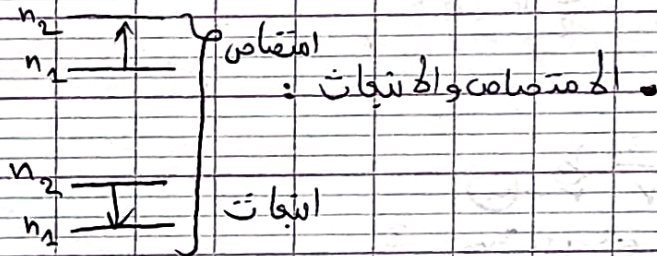 • الامتصاص والانبعاث :
n₂
n₁
امتصاص
n₂
n₁
انبعاث